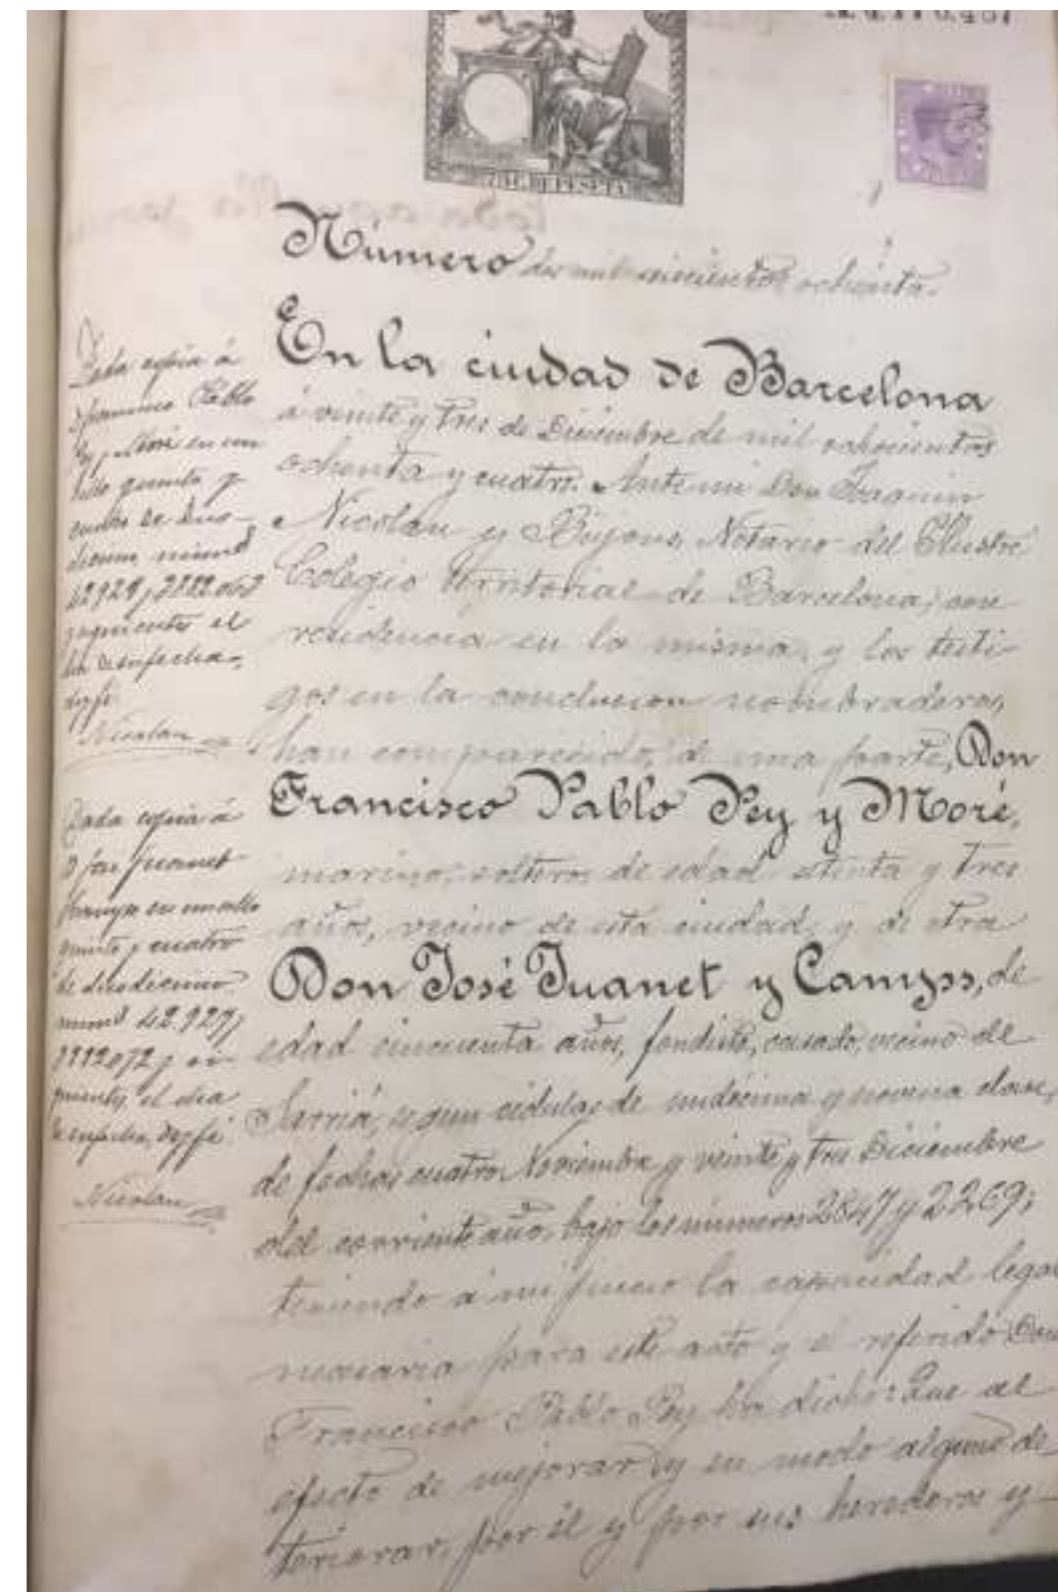 75 C. DE PESETA
Número dos mil ochenta.
En la ciudad de Barcelona
á veinte y tres de Diciembre de mil ochocientos
ochenta y cuatro. Ante mi Don Joaquin
Nicolau y Bujons, Notario del Ilustre
Colegio territorial de Barcelona, con
residencia en la misma, y los testi-
gos en la conclusion nombraderos,
han comparecido, de una parte, Don
Francisco Pablo Pey y Moré,
marino, soltero, de edad setenta y tres
años, vecino de esta ciudad, y de otra
Don José Juanet y Camps, de
edad cincuenta años, fondista, casado, vecino de
Sarriá, segun cedulas de undécima y novena clase,
de fechas cuatro Noviembre y veinte y tres Diciembre
del corriente año, bajo los números 2847 y 2269;
teniendo á mi juicio la capacidad legal
necesaria para este acto y el referido Don
Francisco Pablo Pey ha dicho: Que al
efecto de mejorar y en modo alguno de-
teriorar, por él y por sus herederos y
Dada copia á
Francisco Pablo
Pey y Moré en un
sello quinto y
cuatro de duo-
decimo
siguientes el
dia de su fecha,
doy fé
Nicolau
Dada copia á
D. José Juanet
Camps en un sello
quinto y cuatro
de duodecimo
42.927 y
el dia
de su fecha, doy fé
Nicolau